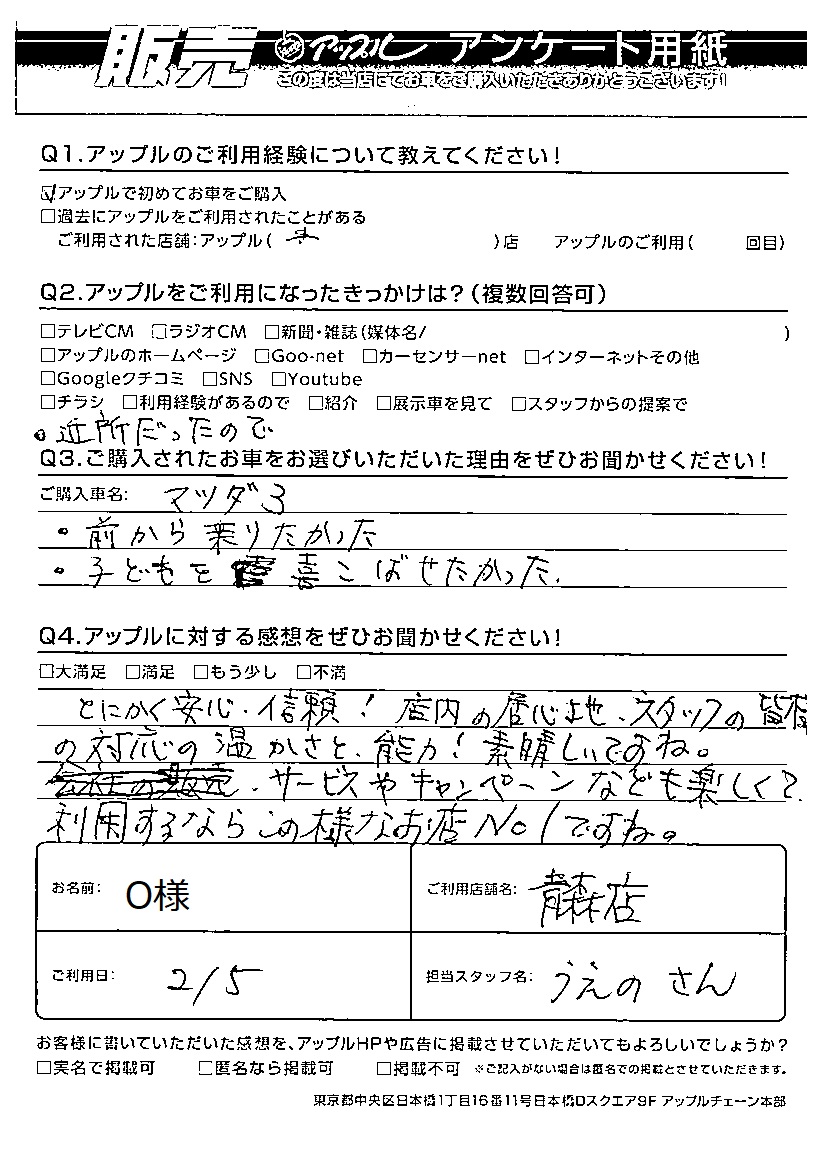 販売 アップル アンケート用紙
この度は当店にてお車をご購入いただきありがとうございます!
Q1.アップルのご利用経験について教えてください!
☑アップルで初めてお車をご購入
□過去にアップルをご利用されたことがある
ご利用された店舗:アップル( )店 アップルのご利用( 回目)
Q2.アップルをご利用になったきっかけは?(複数回答可)
□テレビCM □ラジオCM □新聞・雑誌(媒体名/ )
□アップルのホームページ □Goo-net □カーセンサーnet □インターネットその他
□Googleクチコミ □SNS □Youtube
□チラシ □利用経験があるので □紹介 □展示車を見て □スタッフからの提案で
・近所だったので
Q3.ご購入されたお車をお選びいただいた理由をぜひお聞かせください!
ご購入車名: マツダ3
・前から乗りたかった
・子どもを喜こばせたかった.
Q4.アップルに対する感想をぜひお聞かせください!
□大満足 □満足 □もう少し □不満
とにかく安心・信頼! 店内の居心地、スタッフの皆様
の対応の温かさと、能力!素晴しいですね。
、サービスやキャンペーンなども楽しくて
利用するならこの様なお店No1ですね。
お名前: O様
ご利用店舗名: 青森店
ご利用日: 2/5
担当スタッフ名: うえの さん
お客様に書いていただいた感想を、アップルHPや広告に掲載させていただいてもよろしいでしょうか?
□実名で掲載可 □匿名なら掲載可 □掲載不可 ※ご記入がない場合は匿名での掲載とさせていただきます。
東京都中央区日本橋1丁目16番11号日本橋Dスクエア9F アップルチェーン本部